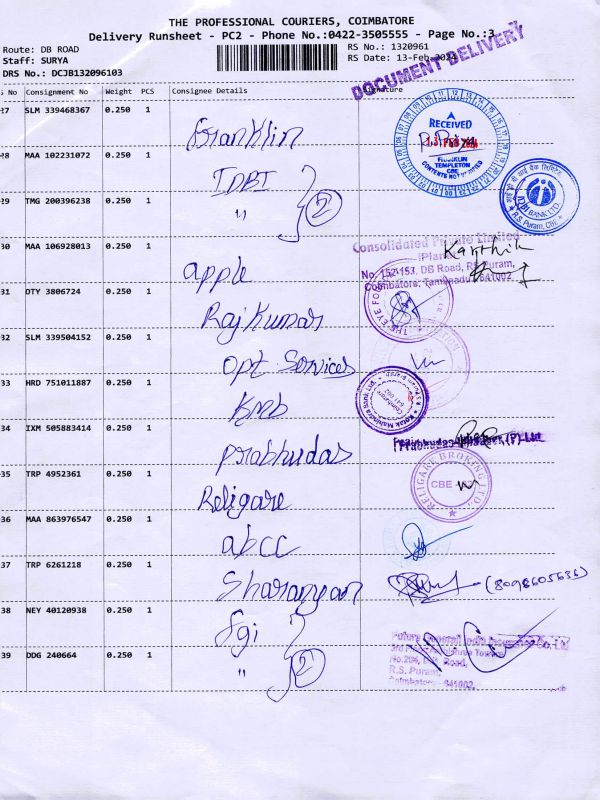 THE PROFESSIONAL COURIERS, COIMBATORE
Delivery Runsheet - PC2 - Phone No.:0422-3505555 - Page No.:3
Route: DB ROAD
Staff: SURYA
DRS No.: DCJB132096103
RS No.: 1320961
RS Date: 13-Feb-2024
DOCUMENT DELIVERY
S No Consignment No Weight PCS Consignee Details Signature
27 SLM 339468367 0.250 1 Franklin
RECEIVED
13 FEB 2024
FRANKLIN
TEMPLETON
CBE
CONTENTS NOT VERIFIED
28 MAA 102231072 0.250 1 IDBI
29 TMG 200396238 0.250 1 " 2
IDBI BANK LTD.
R.S. Puram, Cbe
30 MAA 106928013 0.250 1 apple
Consolidated Private Limited
No. 152-153, DB Road, RS Puram,
Coimbatore, Tamilnadu - 641002
Karthik
31 DTY 3806724 0.250 1 Rajkumar
THE EYE FO
32 SLM 339504152 0.250 1 Opt Services
33 HRD 751011887 0.250 1 KMB
Kotak Mahindra Bank Ltd.
Coimbatore
641 002
34 IXM 505883414 0.250 1 prabhudas
(P) Ltd
35 TRP 4952361 0.250 1 Religare
RELIGARE BROKING LTD.
CBE
36 MAA 863976547 0.250 1 abcc
37 TRP 6261218 0.250 1 Sharanyan
(8098605636)
38 NEY 40120938 0.250 1 fgi
39 DDG 240664 0.250 1 " 2
Future Generali India Insurance Co. Ltd
Road,
R.S. Puram,
Coimbatore - 641002.